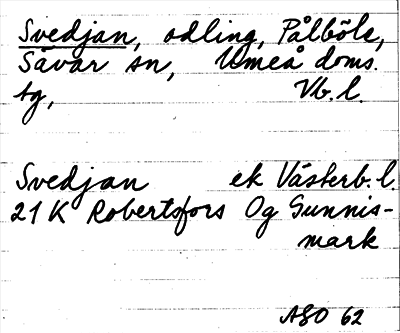 Svedjan, odling, Pålböle,
Sävar sn, Umeå doms.
tg, Vb. l.
Svedjan ek Västerb. l.
21 K Robertsfors Og Gunnis-
mark
ASO 62